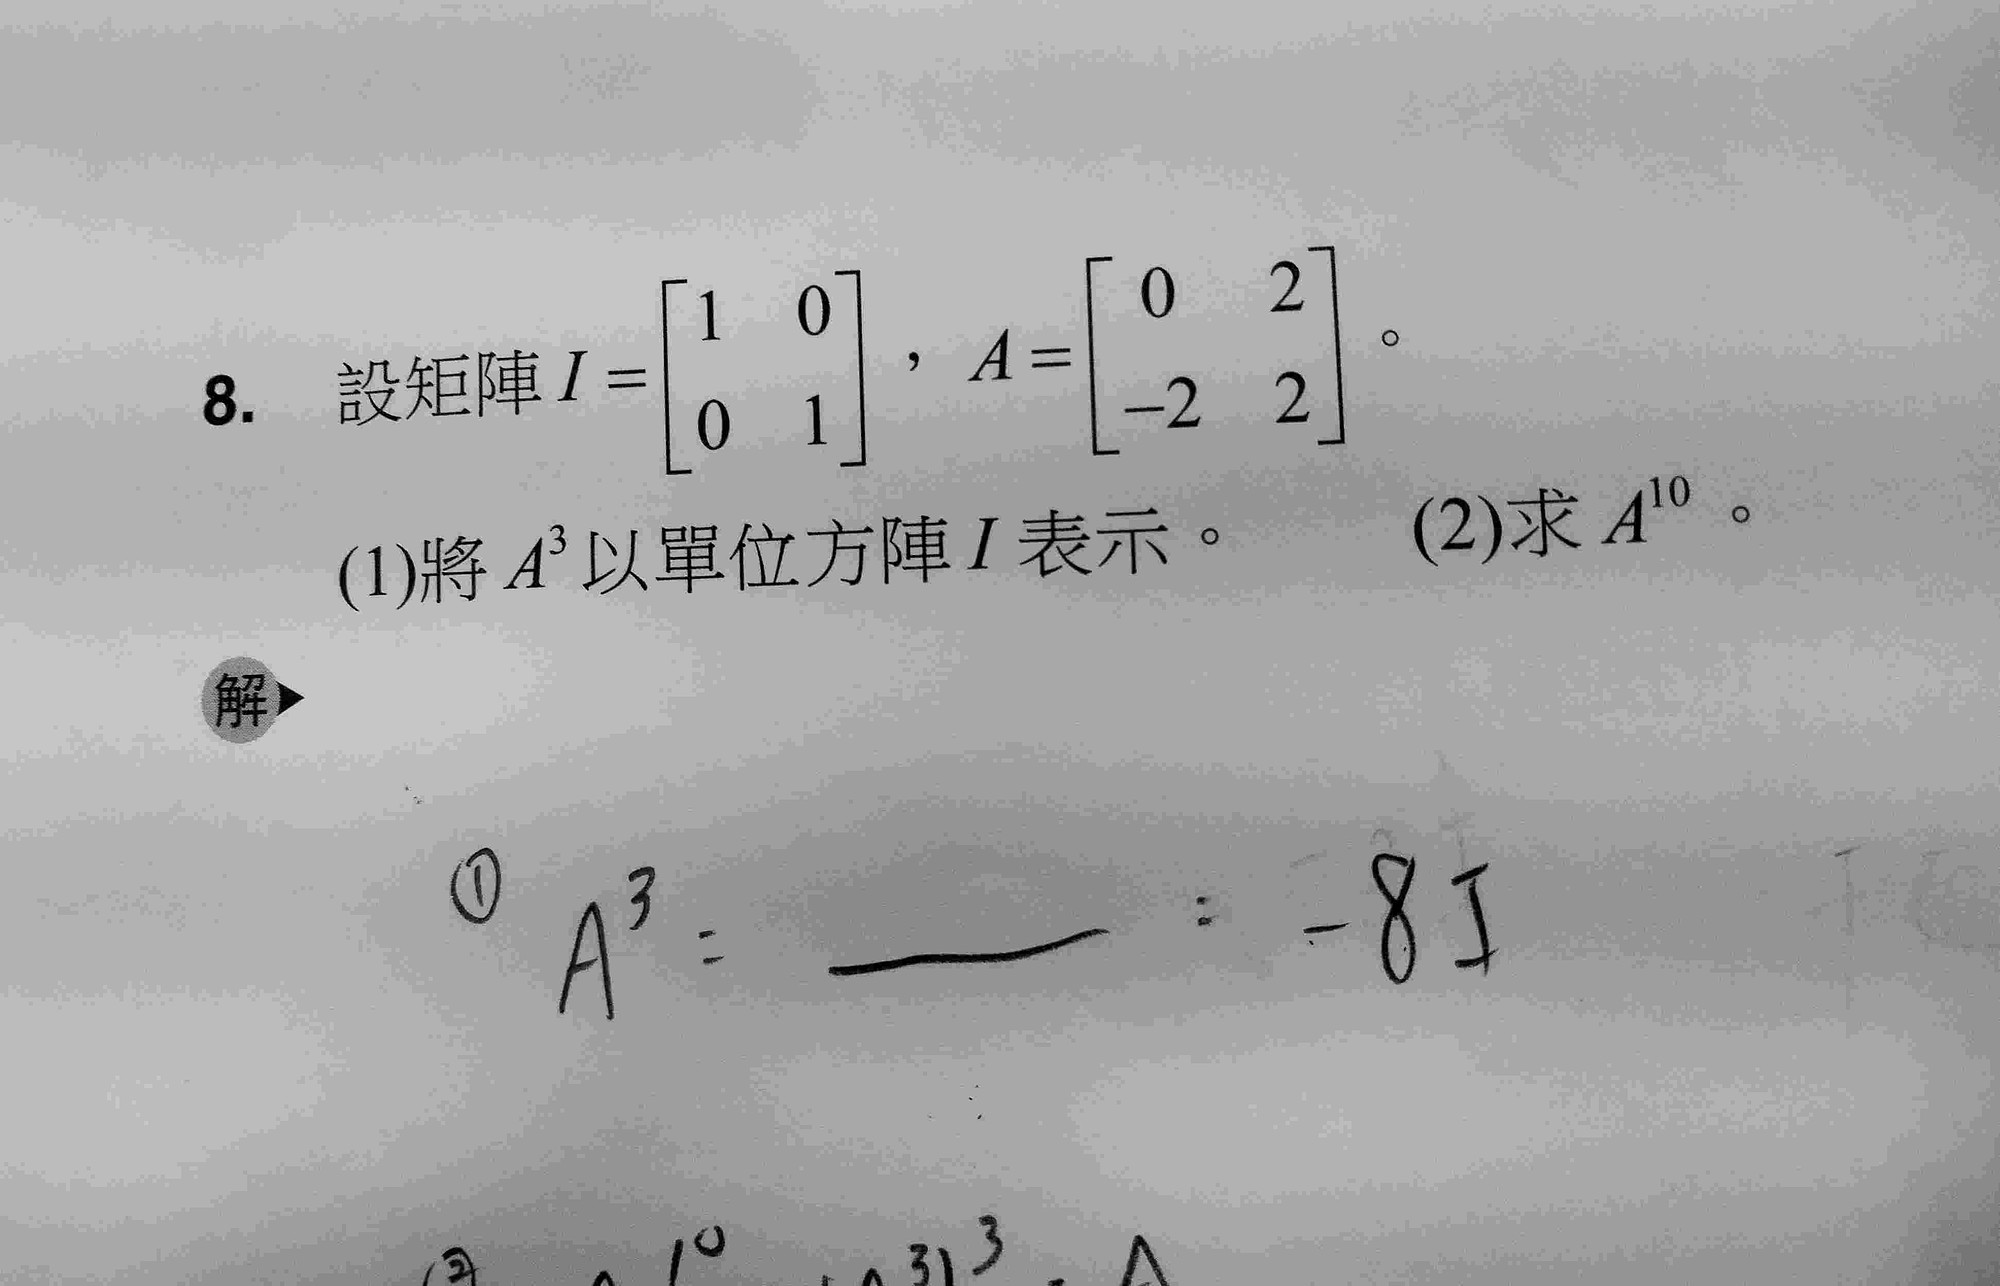 8. 設矩陣 I = [1 0; 0 1] , A = [0 2; -2 2] 。
(1)將 A³ 以單位方陣 I 表示。 (2)求 A¹⁰ 。
解▶
① A³ = ___ = -8I